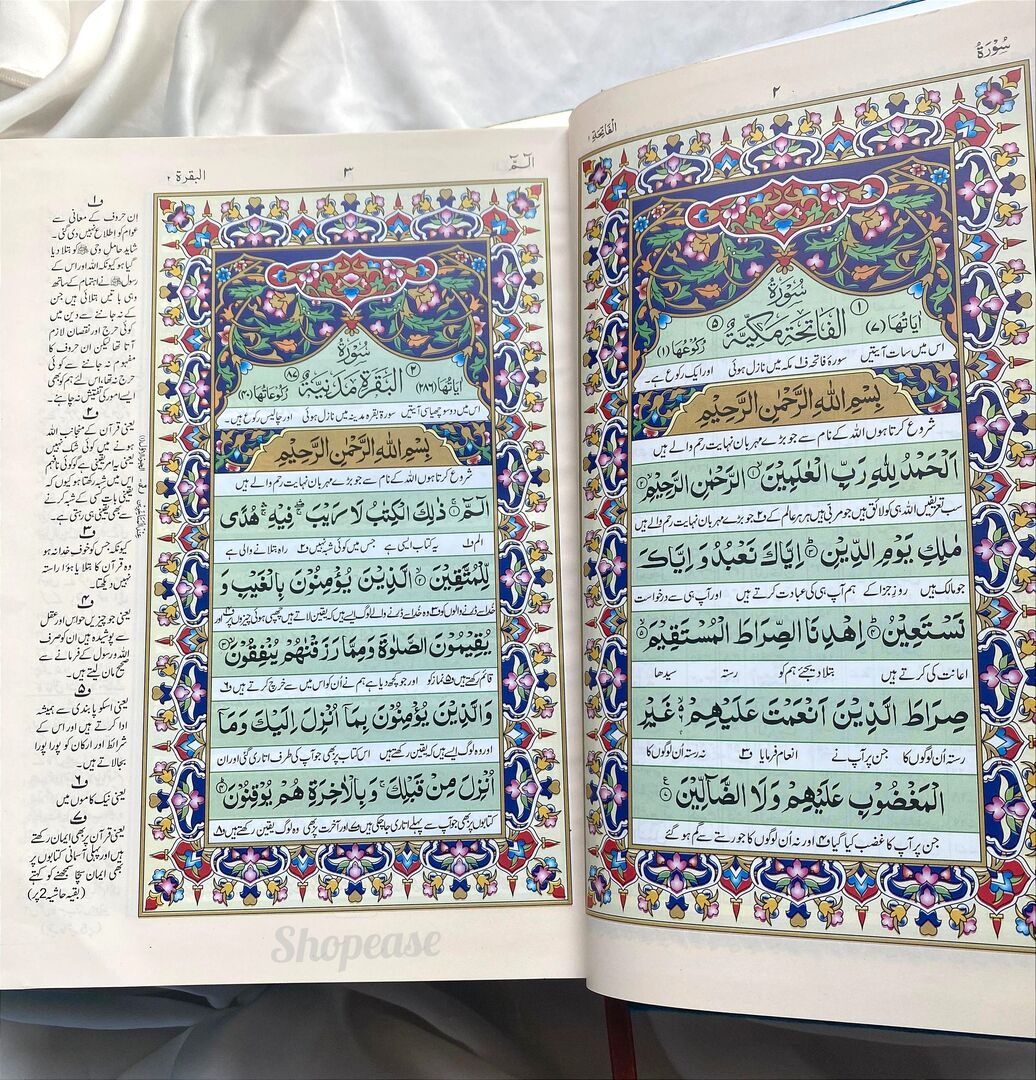 سُوْرَةُ
٢
اَلْفَاتِحَة ١
سُوْرَةُ
١
اٰيَاتُهَا (٧) الْفَاتِحَةِ مَكِّيَّةٌ ٥ رُكُوْعُهَا (١)
اس میں سات آیتیں سورۂ فاتحہ ف۱ مکہ میں نازل ہوئی اور ایک رکوع ہے۔
بِسْمِ اللهِ الرَّحْمٰنِ الرَّحِيْمِ
شروع کرتا ہوں اللہ کے نام سے جو بڑے مہربان نہایت رحم والے ہیں
اَلْحَمْدُ لِلّٰهِ رَبِّ الْعٰلَمِيْنَ ۙ١ الرَّحْمٰنِ الرَّحِيْمِ ۙ٢
سب تعریفیں اللہ ہی کو لائق ہیں جو مربی ہیں ہر ہر عالم کے ف۲ جو بڑے مہربان نہایت رحم والے ہیں
مٰلِكِ يَوْمِ الدِّيْنِ ؕ٣ اِيَّاكَ نَعْبُدُ وَ اِيَّاكَ
جو مالک ہیں روزِ جزا کے ہم آپ ہی کی عبادت کرتے ہیں اور آپ ہی سے درخواست
نَسْتَعِيْنُ ؕ٤ اِهْدِنَا الصِّرَاطَ الْمُسْتَقِيْمَ ۙ٥
اعانت کی کرتے ہیں بتلا دیجئے ہم کو رستہ سیدھا
صِرَاطَ الَّذِيْنَ اَنْعَمْتَ عَلَيْهِمْ ۙ٦ غَيْرِ
رستہ اُن لوگوں کا جن پر آپ نے انعام فرمایا ف۳ نہ رستہ اُن لوگوں کا
الْمَغْضُوْبِ عَلَيْهِمْ وَلَا الضَّآلِّيْنَ ٧
جن پر آپ کا غضب کیا گیا ف۴ اور نہ اُن لوگوں کا جو رستے سے گم ہو گئے
الٓـمّٓ
٣
البقرة ٢
سُوْرَةُ
٢
اٰيَاتُهَا (٢٨٦) الْبَقَرَةِ مَدَنِيَّةٌ ٨٧ رُكُوْعَاتُهَا (٤٠)
اس میں دو سو چھیاسی آیتیں سورۃ بقرہ مدینہ میں نازل ہوئی اور چالیس رکوع ہیں۔
بِسْمِ اللهِ الرَّحْمٰنِ الرَّحِيْمِ
شروع کرتا ہوں اللہ کے نام سے جو بڑے مہربان نہایت رحم والے ہیں
الٓـمّٓ ۚ١ ذٰلِكَ الْكِتٰبُ لَا رَيْبَ ۖۚۛ فِيْهِ ۚۛ هُدًى
الم ف۱ یہ کتاب ایسی ہے جس میں کوئی شبہ نہیں ف۲ راہ بتلانے والی ہے
لِّلْمُتَّقِيْنَ ۙ٢ الَّذِيْنَ يُؤْمِنُوْنَ بِالْغَيْبِ وَ
خدا سے ڈرنے والوں کو ف۳ وہ خدا سے ڈرنے والے لوگ ایسے ہیں کہ یقین لاتے ہیں چھپی ہوئی چیزوں پر ف۴ اور
يُقِيْمُوْنَ الصَّلٰوةَ وَمِمَّا رَزَقْنٰهُمْ يُنْفِقُوْنَ ۙ٣
قائم رکھتے ہیں ف۵ نماز کو اور جو کچھ دیا ہے ہم نے اُن کو اس میں سے خرچ کرتے ہیں ف۶
وَالَّذِيْنَ يُؤْمِنُوْنَ بِمَآ اُنْزِلَ اِلَيْكَ وَمَآ
اور وہ لوگ ایسے ہیں کہ یقین رکھتے ہیں اس کتاب پر بھی جو آپ کی طرف اتاری گئی اور ان
اُنْزِلَ مِنْ قَبْلِكَ ۚ وَ بِالْاٰخِرَةِ هُمْ يُوْقِنُوْنَ ؕ٤
کتابوں پر بھی جو آپ سے پہلے اتاری جا چکی ہیں ف۷ اور آخرت پر بھی وہ لوگ یقین رکھتے ہیں ف۸
۱
ان حروف کے معانی سے
عوام کو اطلاع نہیں دی گئی۔
شاید حامل وحی ﷺ کو بتلا دیا
گیا ہو کیونکہ اللہ اور اس کے
رسول ﷺ نے اہتمام کے ساتھ
وہی باتیں بتلائی ہیں جن
کے نہ جاننے سے دین میں
کوئی حرج اور نقصان لازم
آتا تھا لیکن ان حروف کا
مفہوم نہ جاننے سے کوئی
حرج نہ تھا، اس لئے ہم کو بھی
ایسے امور کی تفتیش نہ چاہئے۔
۲
یعنی قرآن کے منجانب اللہ
ہونے میں کوئی شک نہیں
یعنی یہ امر یقینی ہے گو کوئی نافہم
اس میں شبہ رکھتا ہو کیوں کہ
یقینی بات کسی کے شبہ کرنے
سے بھی یقینی ہی رہتی ہے۔
۳
کیونکہ جس کو خوف خدا نہ ہو
وہ قرآن کا بتلایا ہوا راستہ
نہیں دیکھتا۔
۴
یعنی جو چیزیں حواس اور عقل
سے پوشیدہ ہیں ان کو صرف
اللہ و رسول کے فرمانے سے
صحیح مان لیتے ہیں۔
۵
یعنی اسکو پابندی سے ہمیشہ
ادا کرتے ہیں اور اس کے
شرائط اور ارکان کو پورا پورا
بجالاتے ہیں۔
۶
یعنی نیک کاموں میں
۷
یعنی قرآن پر بھی ایمان رکھتے
ہیں اور پہلی آسمانی کتابوں پر
بھی ایمان سچا سمجھنے کو کہتے
(بقیہ حاشیہ 2 پر)
Shopease